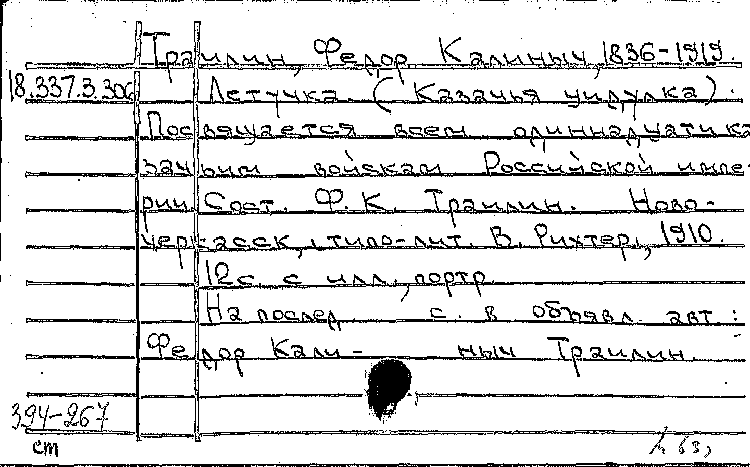 Траилин, Федор Калиныч, 1836-1919.
18.337.3.306 Летучка. (Казачья цидулка).
Посвящается всем одиннадцати ка-
зачьим войскам Российской импе-
рии. Сост. Ф. К. Траилин. Ново-
черкасск, типо-лит. В. Рихтер, 1910.
12 с. с илл., портр.
На послед. с. в объявл. авт:
Федор Кали- ныч Траилин.
394-267
cm